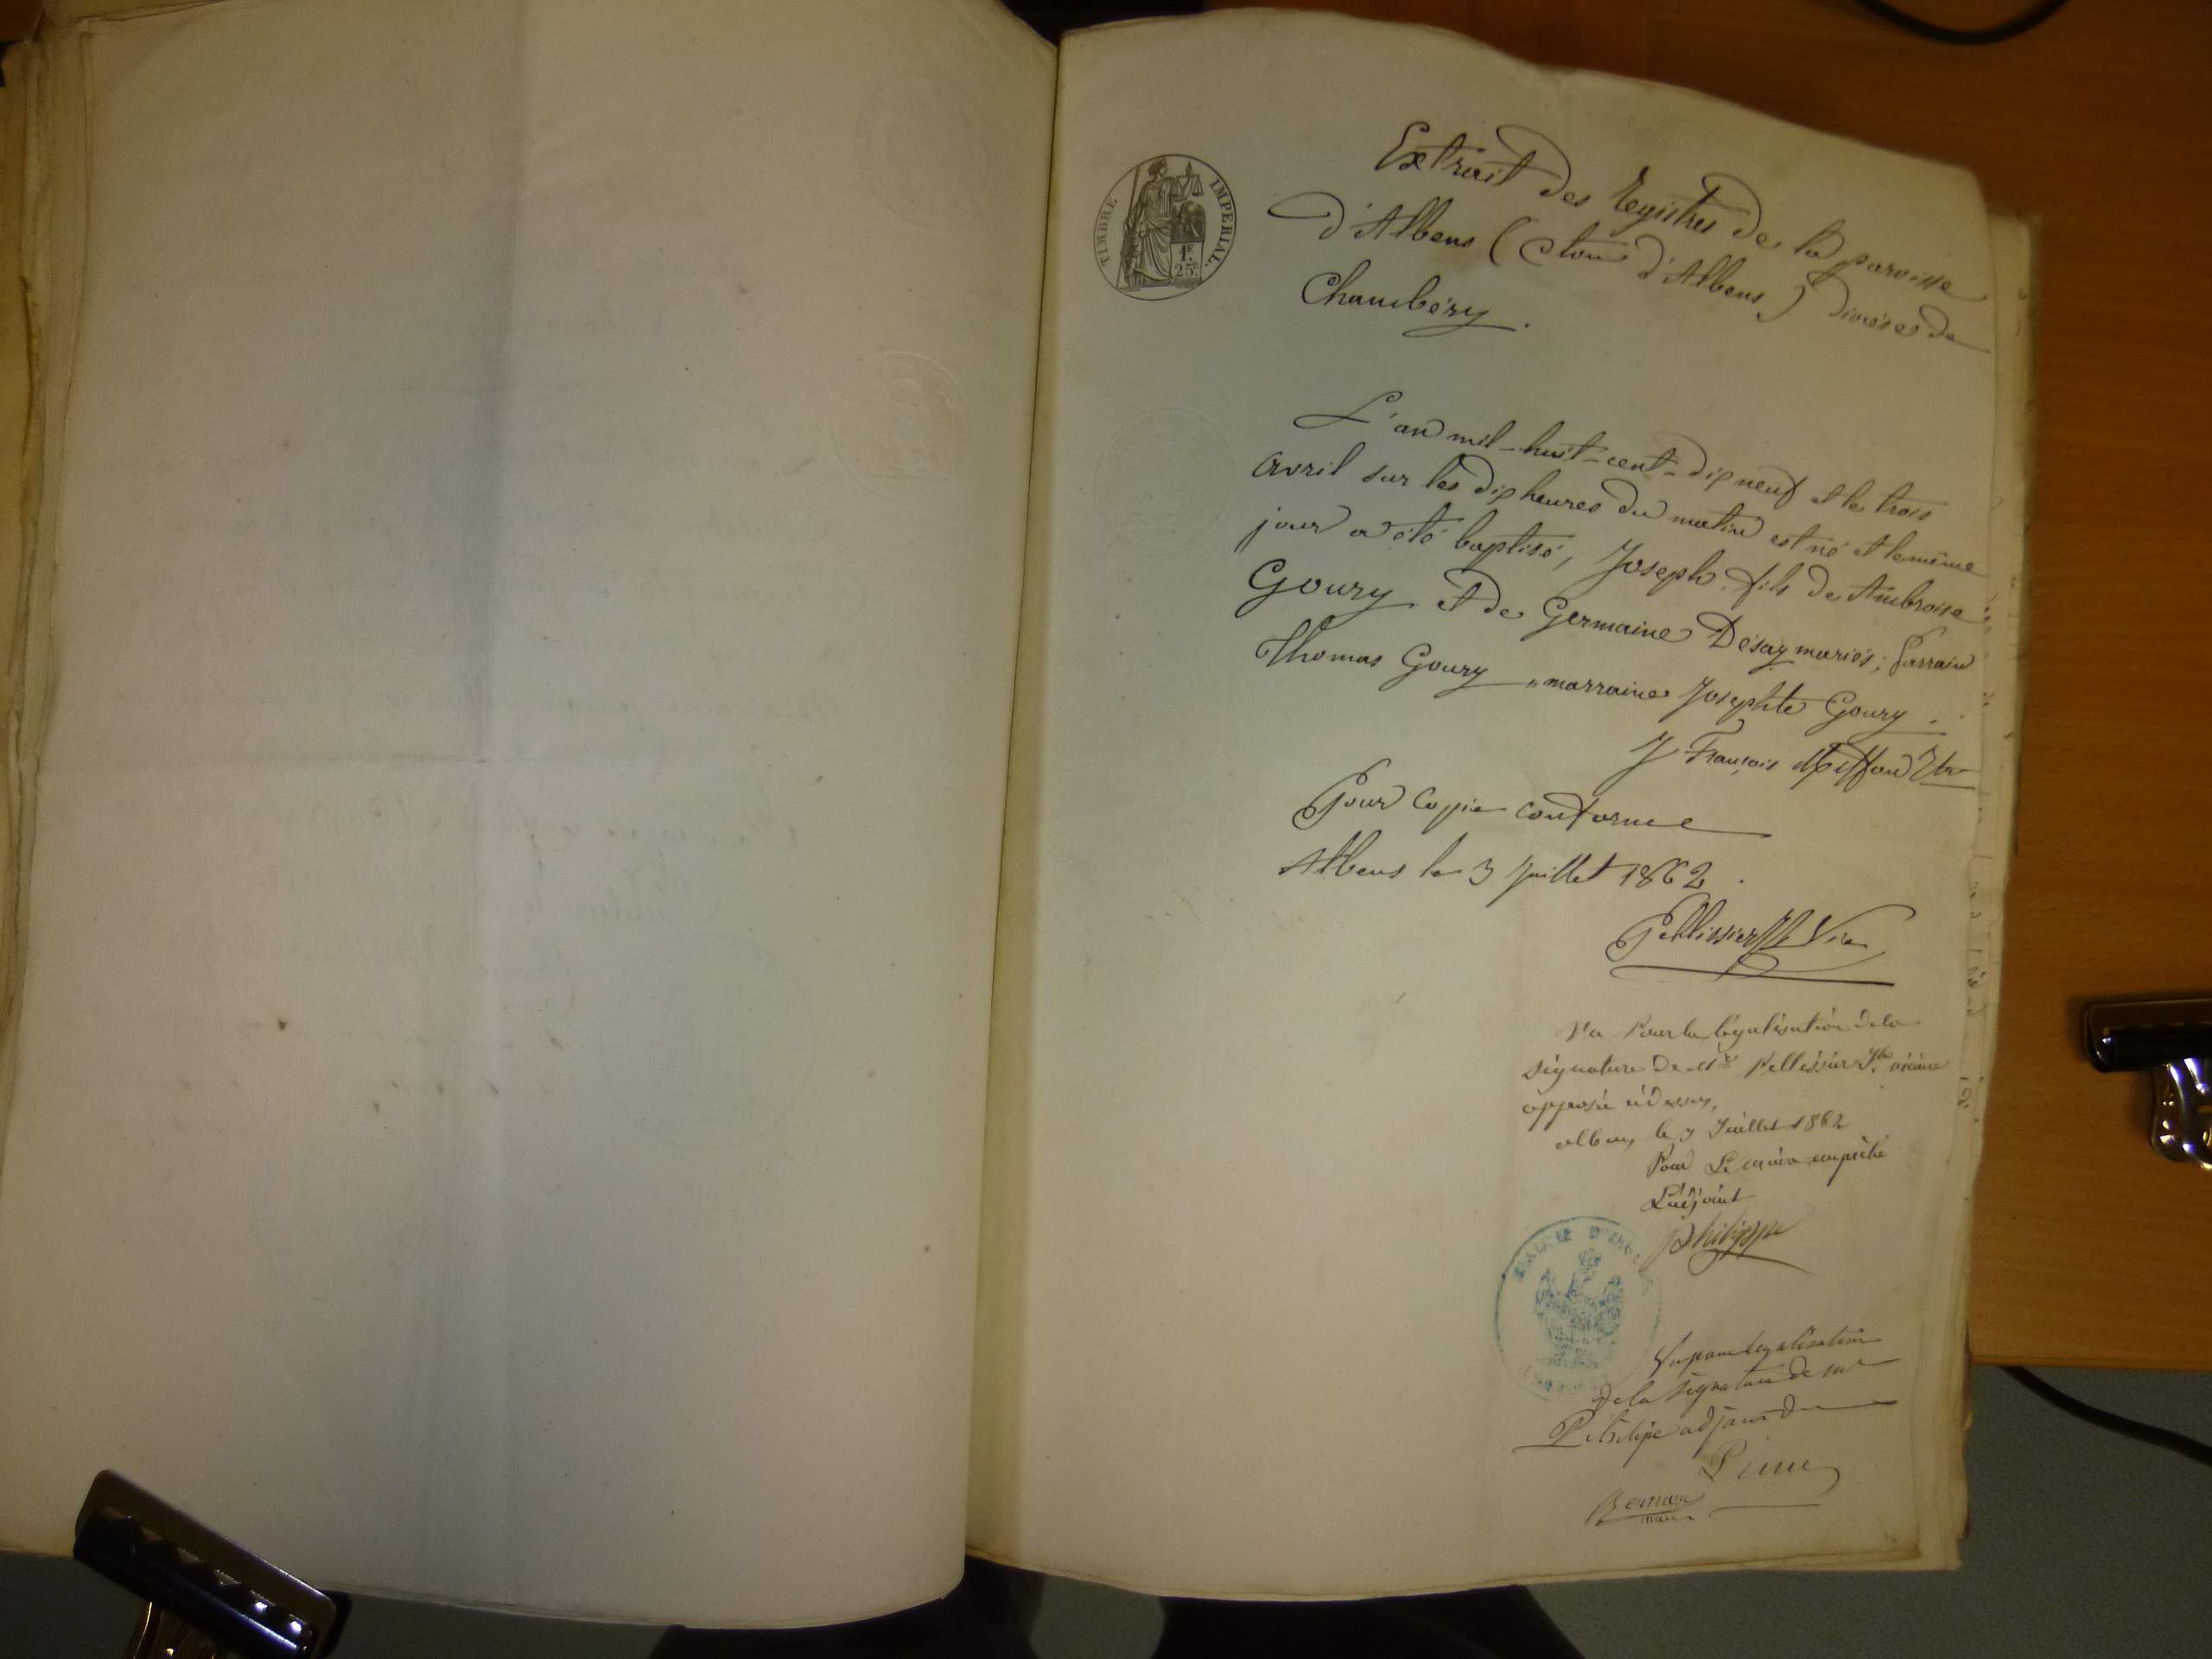 TIMBRE IMPERIAL.
1F.
25c.
Extrait des Registres de la paroisse
d'Albens (Cton d'Albens) diocèse de
Chambéry.
L'an mil-huit-cent-dix neuf et le trois
avril sur les dix heures du matin est né et le même
jour a été baptisé, Joseph fils de Ambroise
Goury et de Germaine Désay mariés; Parrain
Thomas Goury, marraine Josephte Goury.
J François
Pour Copie conforme
Albens le 3 Juillet 1862.
Pellissier Vic
Vu Pour la légalisation de la
signature de Mr Pellissier vicaire
apposée ci dessus,
albens le 3 Juillet 1862
Pour Le maire empêché
L'adjoint
Philippe
MAIRIE D'ALBENS
Vu pour légalisation
de la signature de Mr
Philipe adjoint